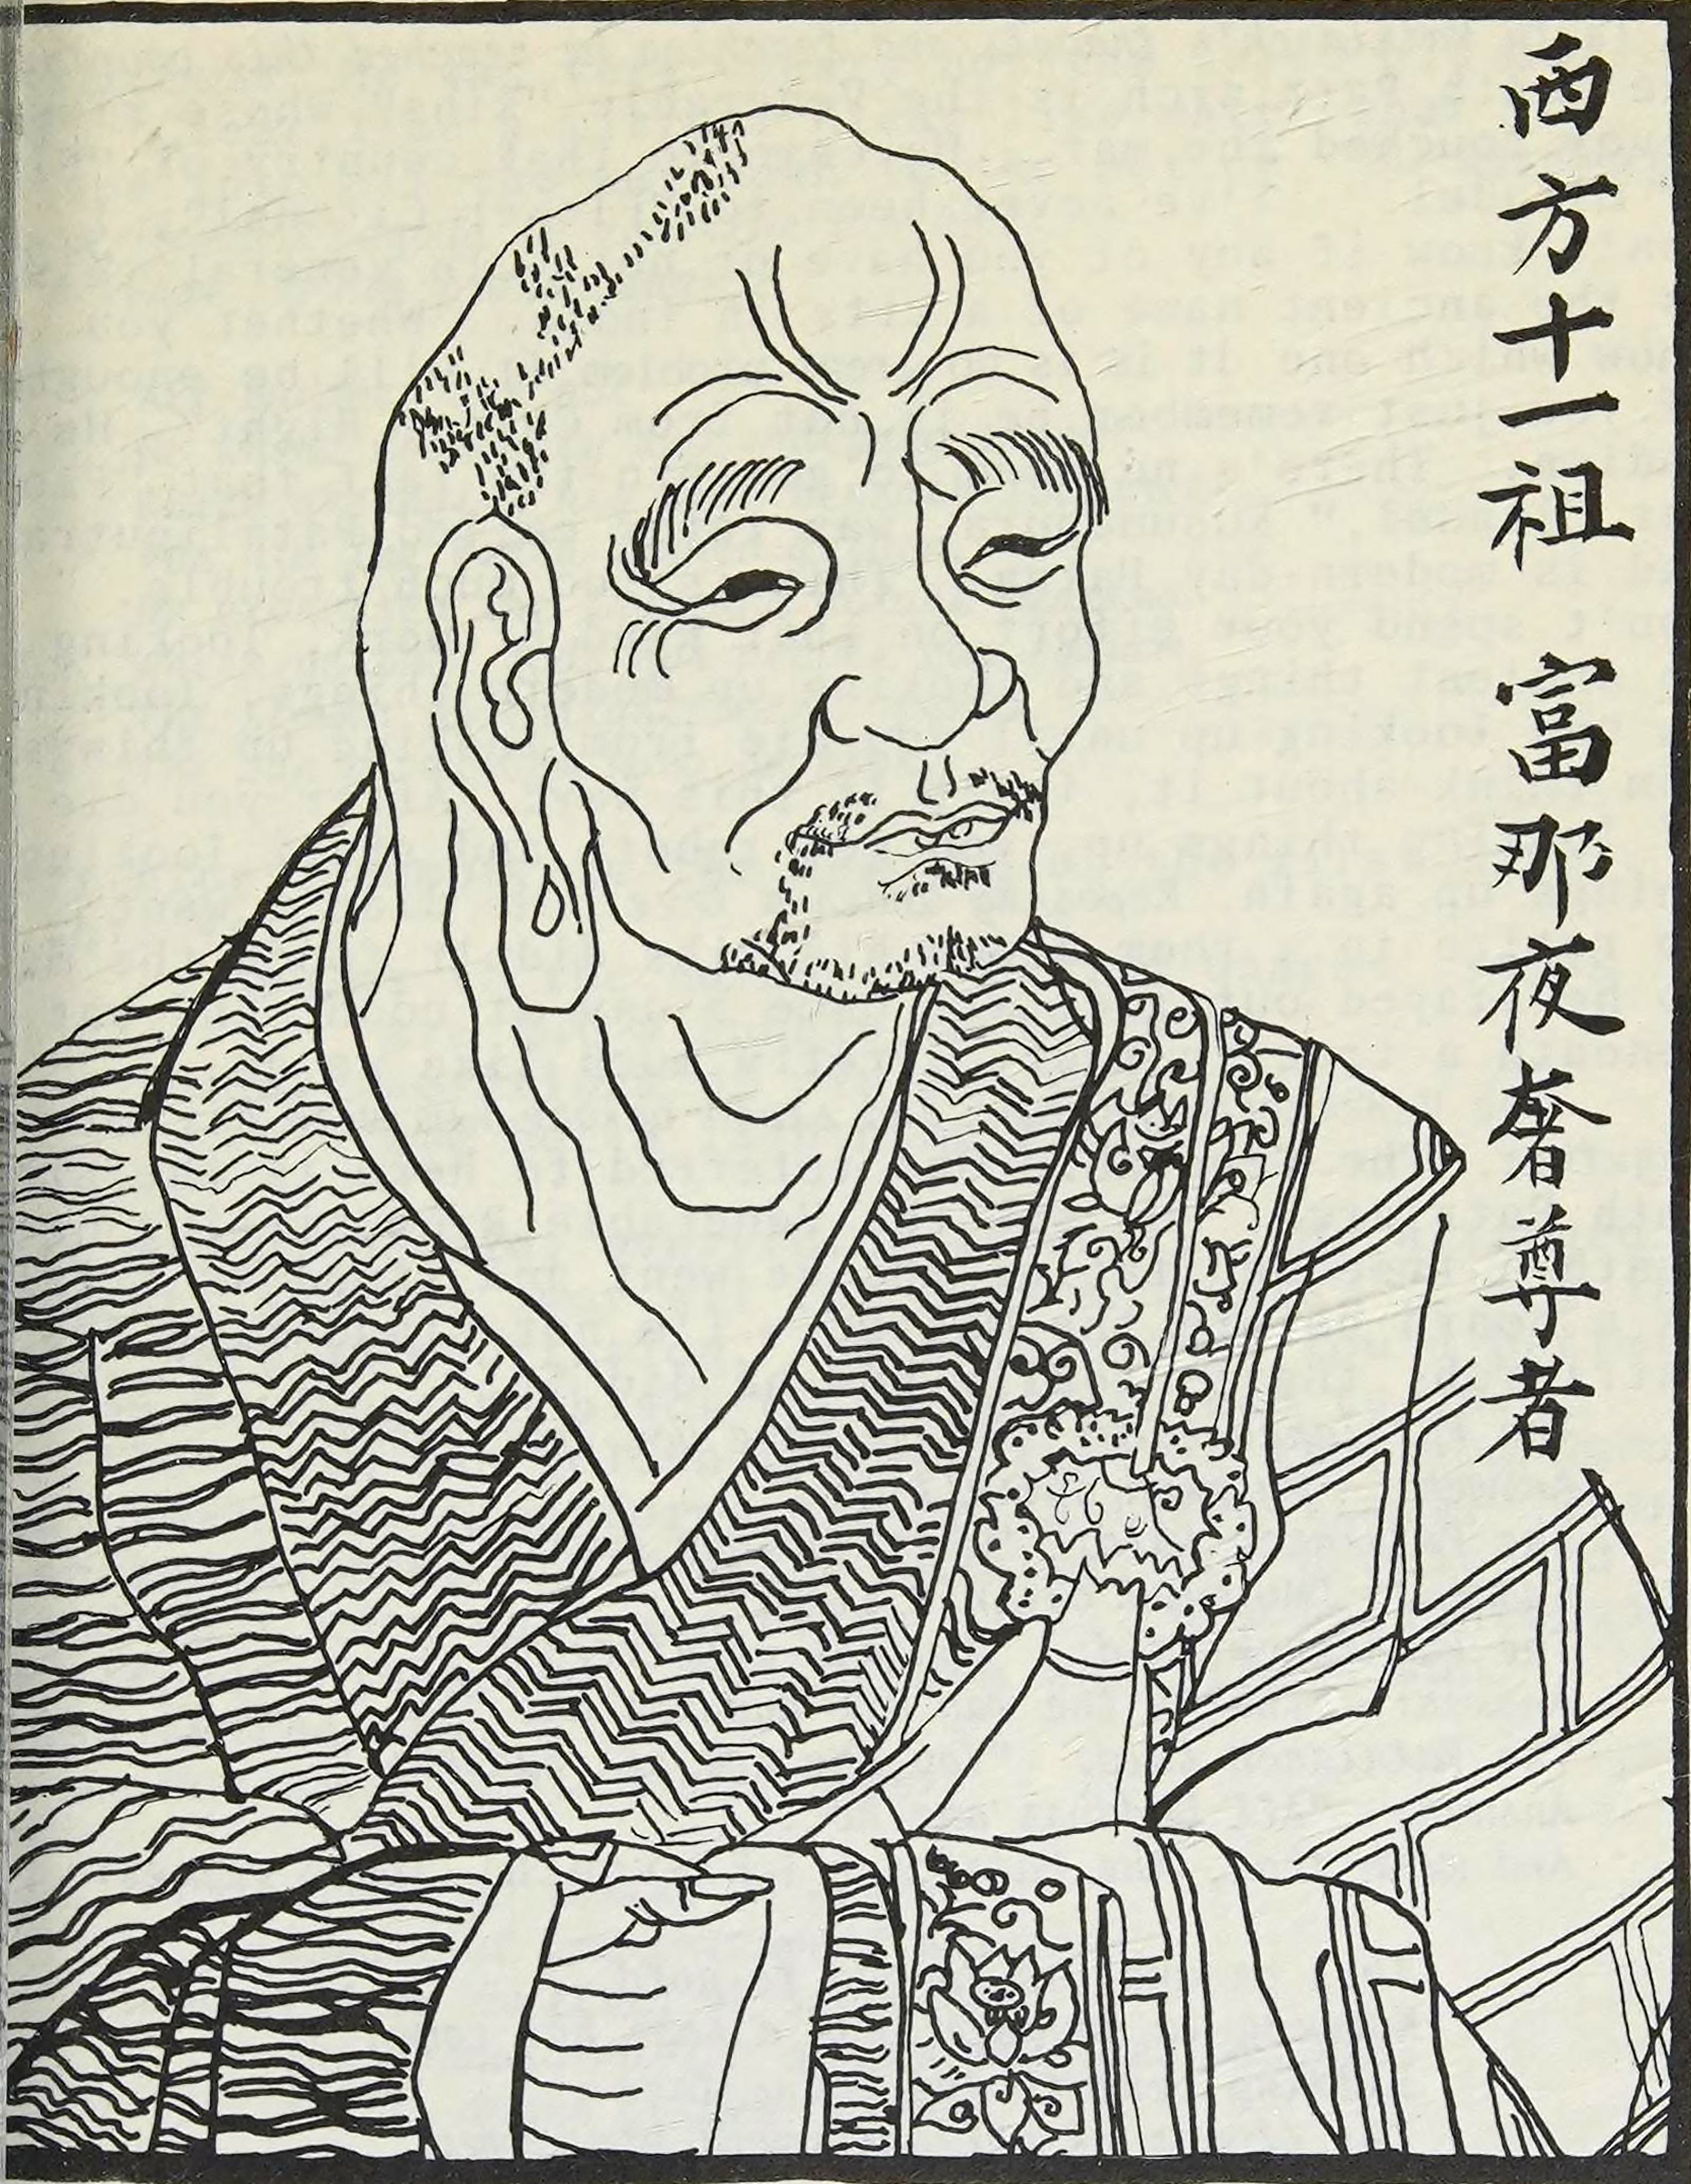 西方十一祖 富那夜奢尊者